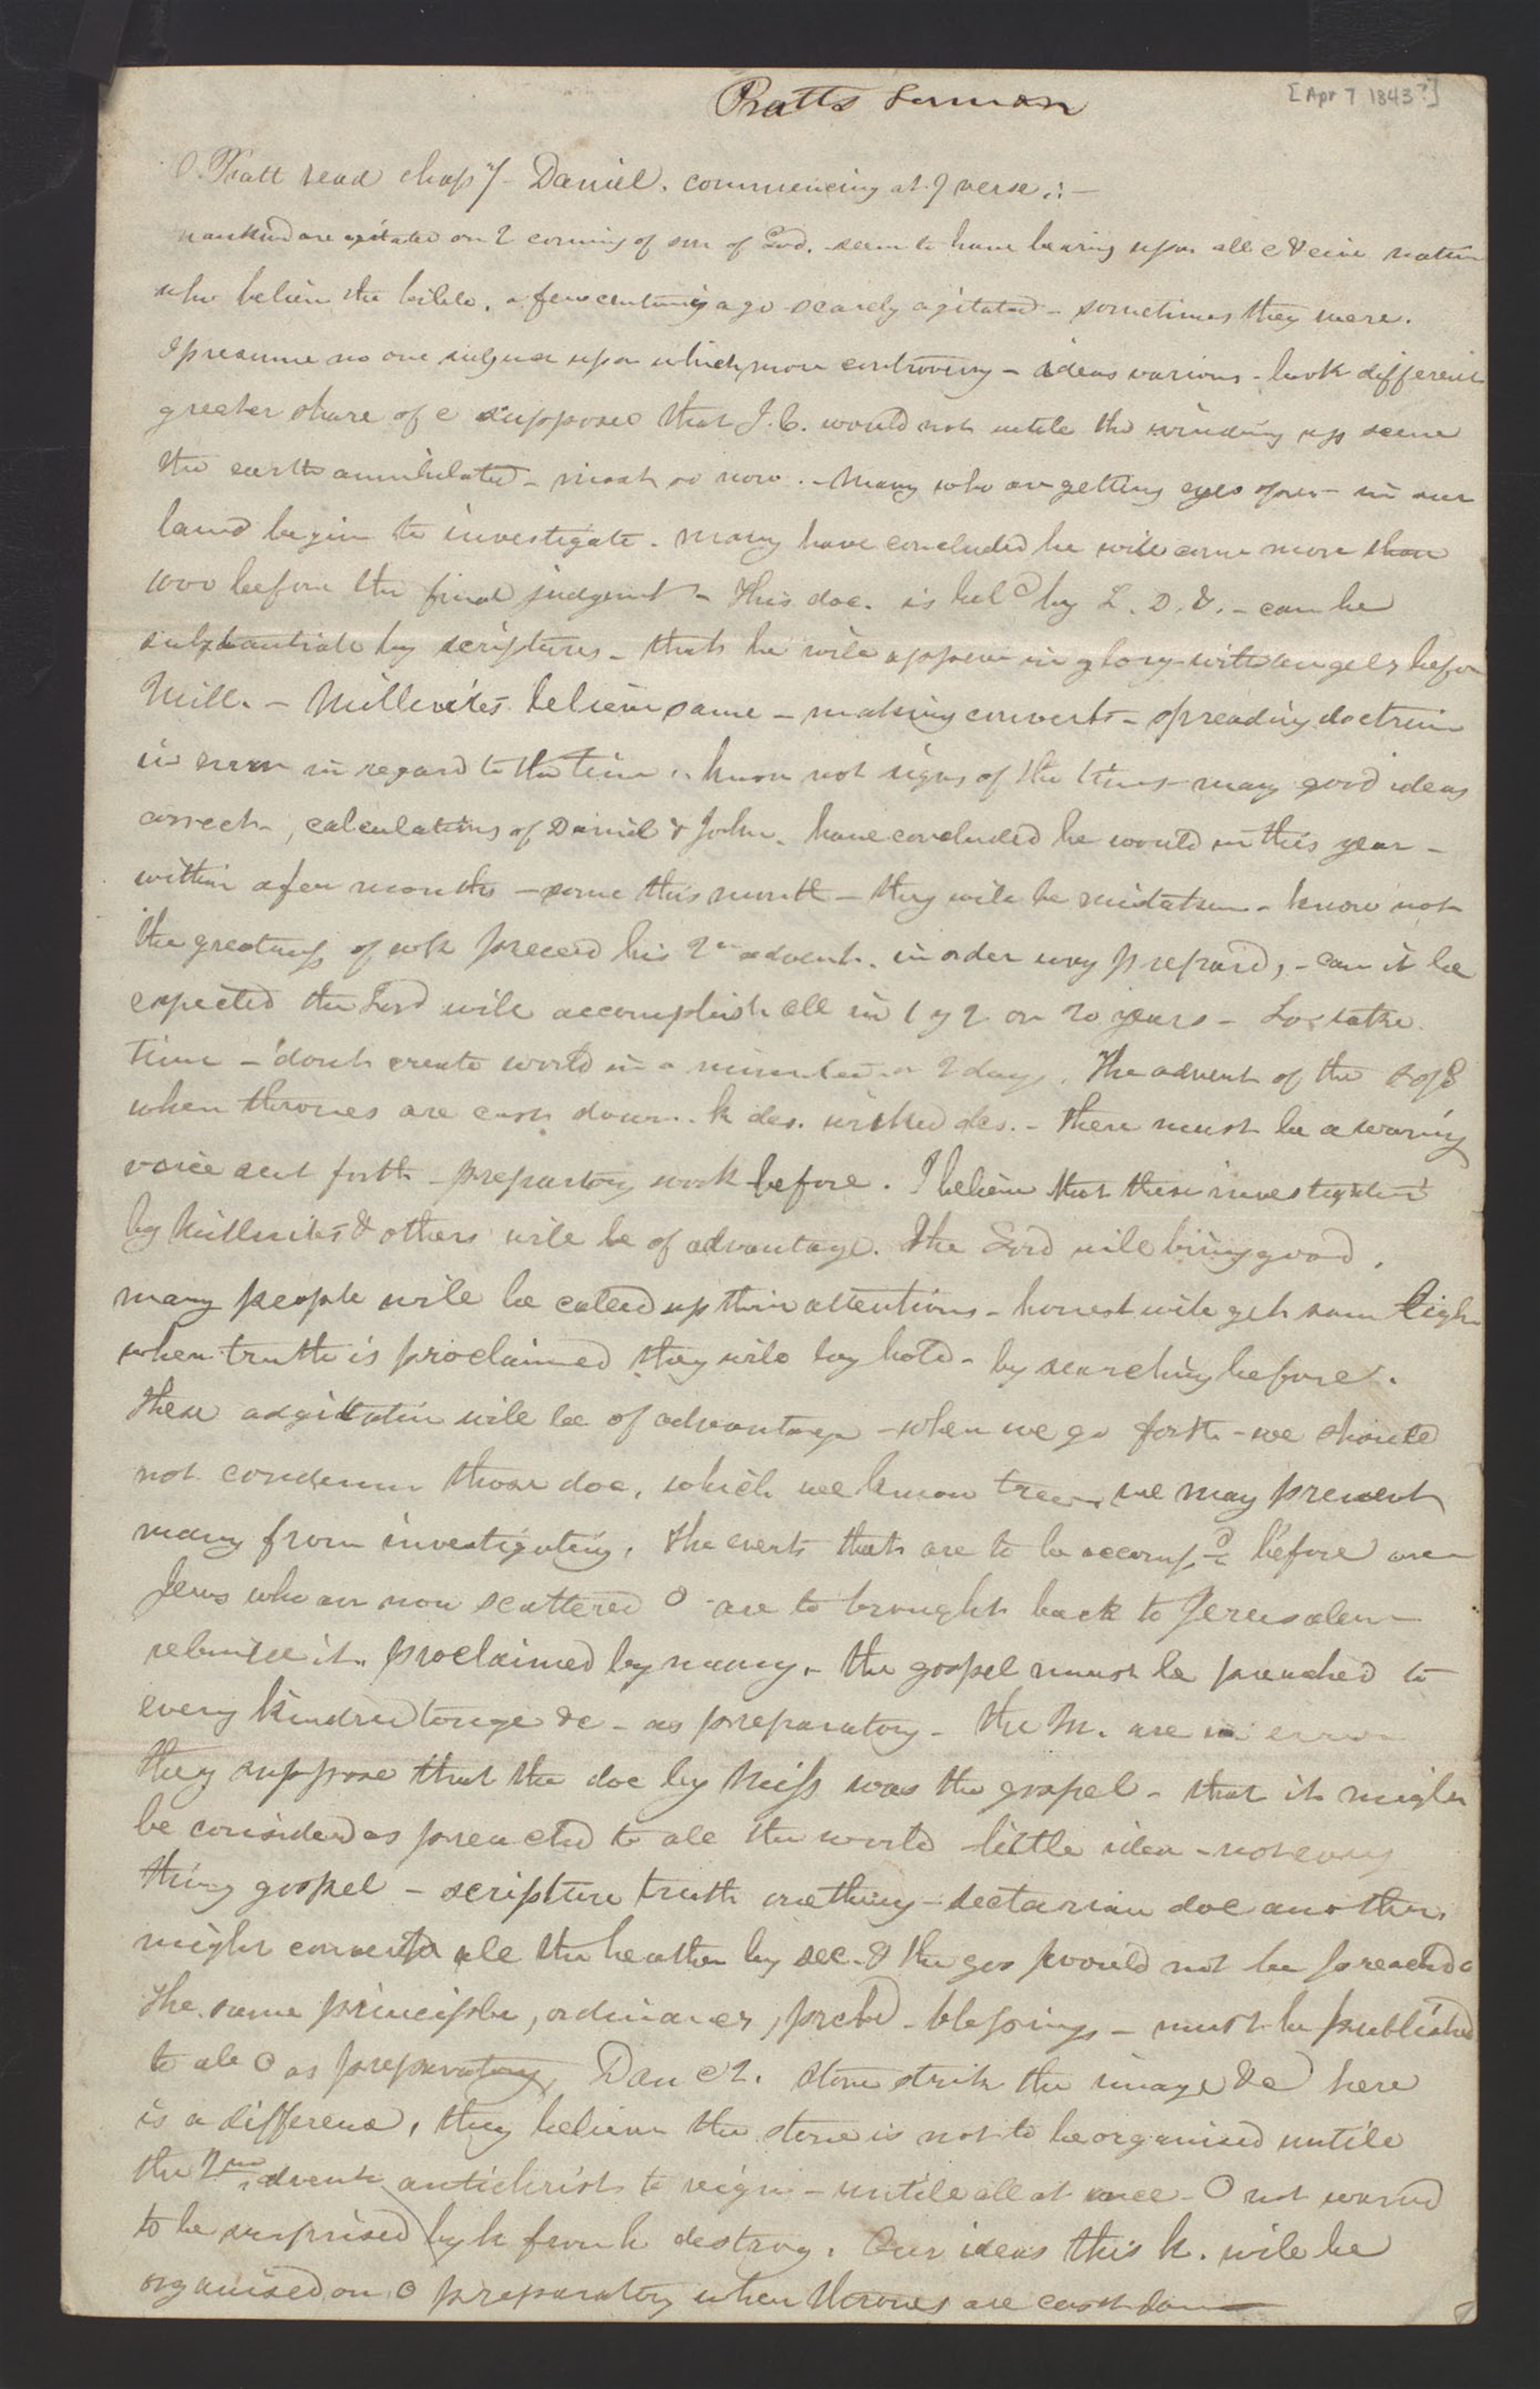 Pratts Sermon
[Apr 7 1843?]
O. Pratt read chap 7 Daniel. commencing at 9 verse.:—
mankind are agitated on 2 coming of son of God. seem to have bearing upon all
who believe the bible. a few centuries ago scarcely agitated - sometimes they were.
I presume no one subject upon which more controversy - ideas various - look different
greater share of c supposed that J. C. would not untile the winding up scene
the earth annihilated - most so now. - Many who are getting eyes open - in our
land begin to investigate. many have concluded he will come more than
1000 before the final judgment - This doc. is held by L. D. S. - can be
substantiate by scriptures - that he will appear in glory with angels before
Mill. - Millerites believe same - making converts - spreading doctrine
in error in regard to the time. know not signs of the times many good ideas
correct, calculations of Daniel & John. have concluded he would in this year -
within a few months - some this month - they will be mistaken - know not
the greatness of wk preceed his 2nd advent. in order way prepared, - can it be
expected the Lord will accomplish all in 1 y 2 or 20 years -
time - dont create world in a minute or 2 days. The advent of the S of G
when thrones are cast down. k des. wicked des. - there must be a warning
voice sent forth - preparatory work before. I believe that these investigations
by Millerites & others will be of advantage. The Lord will bring good,
many people will be called up their attentions - honest will get some light
when truth is proclaimed they will lay hold - by searching before.
These adgitation will be of advantage - when we go forth - we should
not condemn those doc, which we know true, we may prevent
many from investigating. the events that are to be accompd before are
Jews who are now scattered O are to brought back to Jerusalem
rebuild it. proclaimed by many. - the gospel must be preached to
every kindred tonge &c - as preparatory - the M. are in error
they suppose that the doc by Miss was the gospel - that it might
be considerd as preached to all the world little idea - not every
thing gospel - scripture truth one thing - sectarian doc another.
might convert all the heathen by sec. & the gos would not be preached
the same principle, ordinances, prchd - blessings - must be published
to all O as preparatory, Dan c 2. stone strike the image &c here
is a difference, they believe the stone is not to be organised untile
the 2nd advent antichrist to reign - untile all at once - O not warned
to be surprised by k from h destroy. Our ideas this k. will be
organised on O preparatory when thrones are cast down